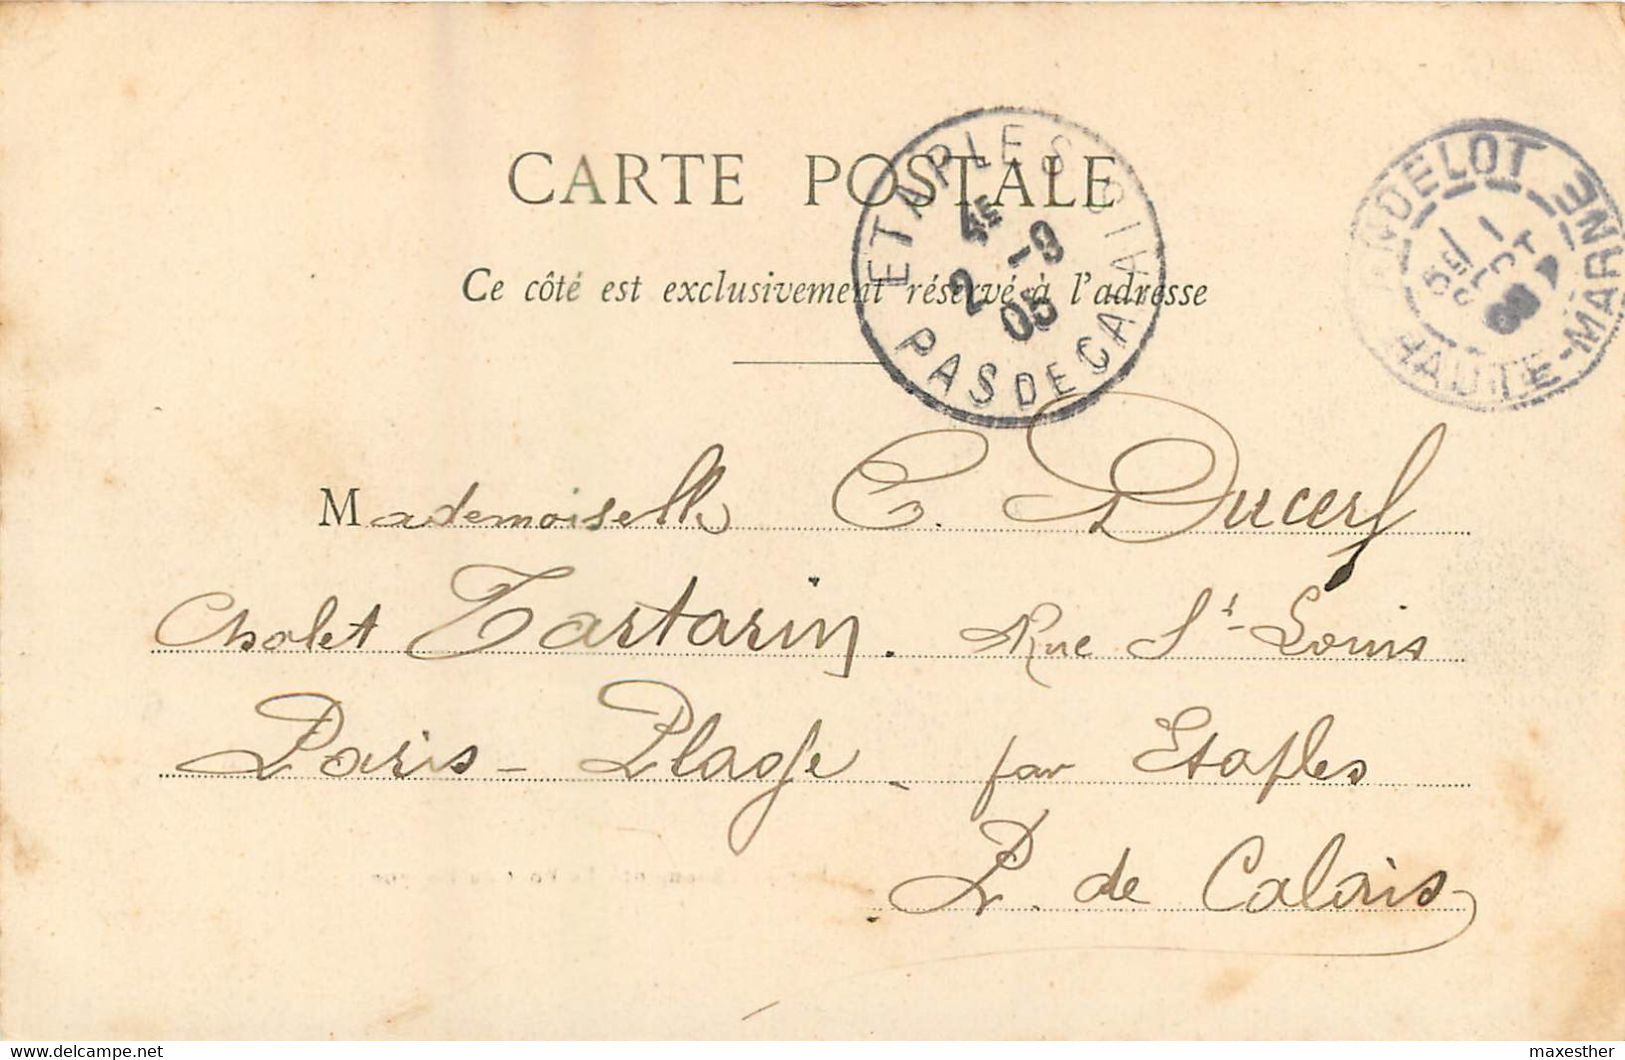 CARTE POSTALE
Ce côté est exclusivement réservé à l'adresse
ETAPLES
4E
2 -9
05
PAS DE CALAIS
ANDELOT
1
SEPT
HAUTE-MARNE
Mademoiselle C. Ducerf
Chalet Tartarin. Rue St-Louis
Paris-Plage. par Etaples
P. de Calais
Delcampe.net
maxesther